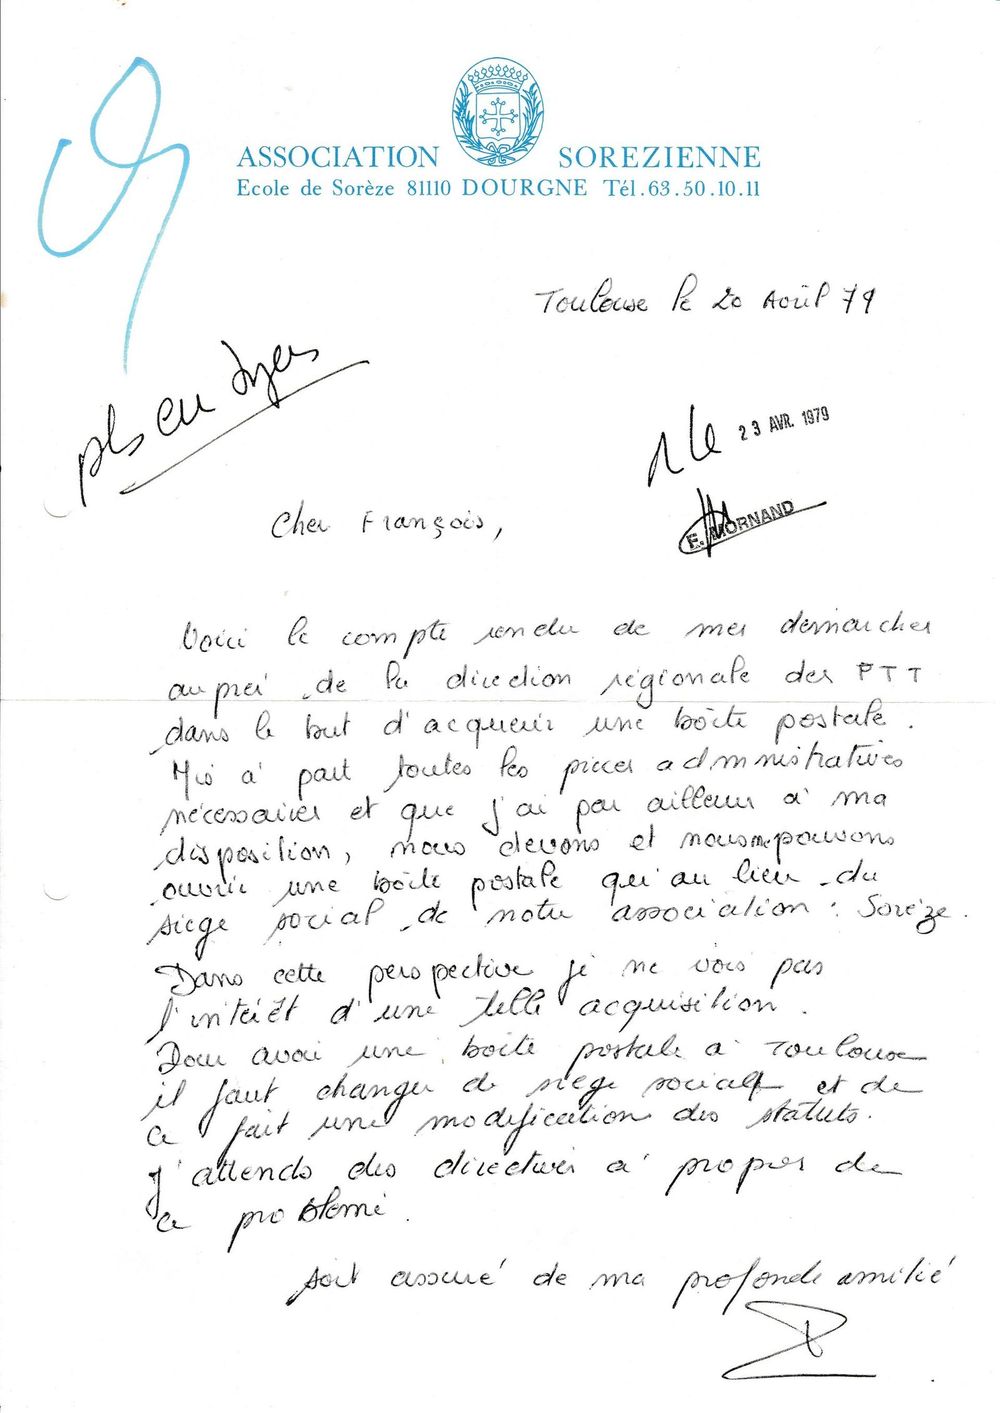 ASSOCIATION SOREZIENNE
Ecole de Sorèze 81110 DOURGNE Tél.63.50.10.11
Toulouse le 20 Août 79
23 AVR. 1979
E. MORNAND
Cher François,
Voici le compte rendu de mes démarches
auprès de la direction régionale des PTT
dans le but d'acquérir une boîte postale.
Mis à part toutes les pièces administratives
nécessaires et que j'ai par ailleurs à ma
disposition, nous devons et nous ne pouvons
ouvrir une boîte postale qu'au lieu du
siège social de notre association : Sorèze.
Dans cette perspective je ne vois pas
l'intérêt d'une telle acquisition.
Pour avoir une boîte postale à Toulouse
il faut changer de siège social et de
ce fait une modification des statuts.
J'attends des directives à propos de
ce problème.
Soit assuré de ma profonde amitié